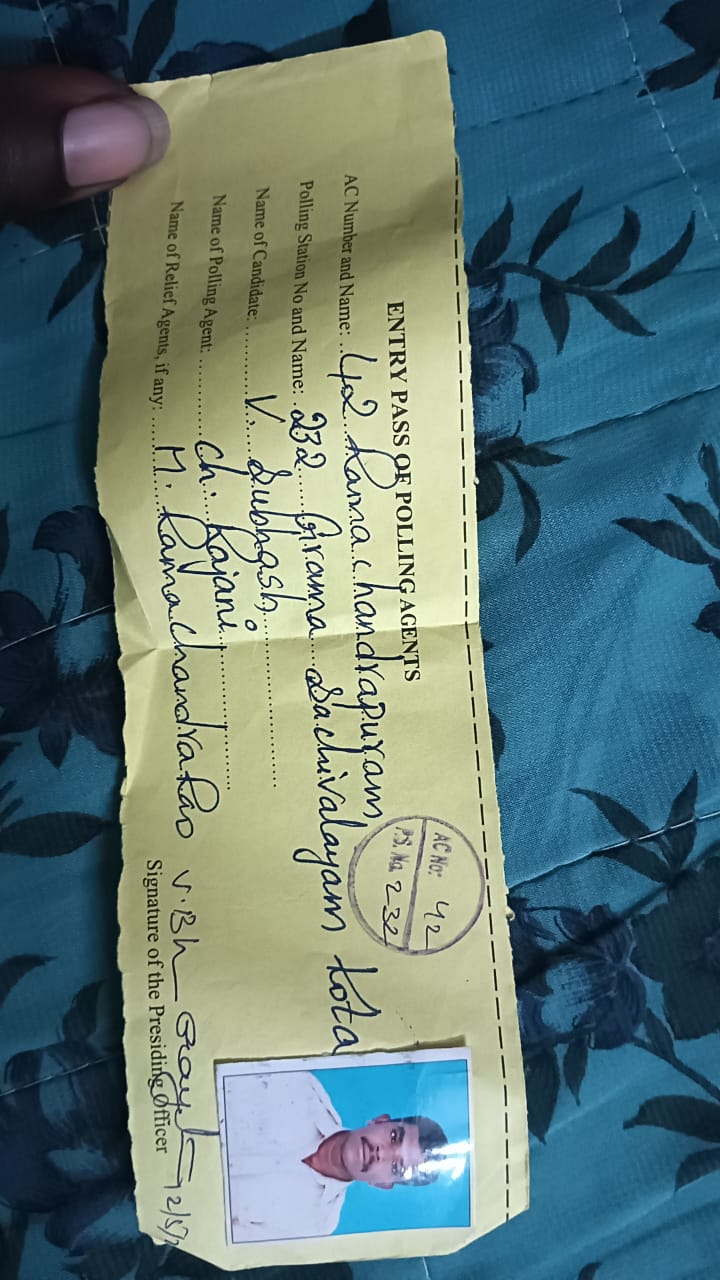 ENTRY PASS OF POLLING AGENTS
AC Number and Name: 42 Ramachandrapuram
Polling Station No and Name: 232 Grama Sachivalayam Kota
Name of Candidate: V. Subhash,
Name of Polling Agent: Ch. Rajani
Name of Relief Agents, if any: M. Ramachandra Rao
AC No: 42
P.S. No. 232
V. Bh
Signature of the Presiding Officer